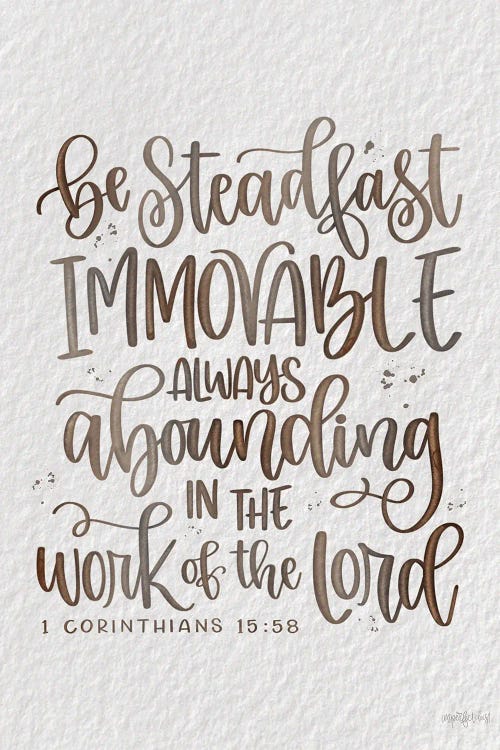 be Steadfast
IMMOVABLE
ALWAYS
abounding
IN THE
WORK of the Lord
1 CORINTHIANS 15:58